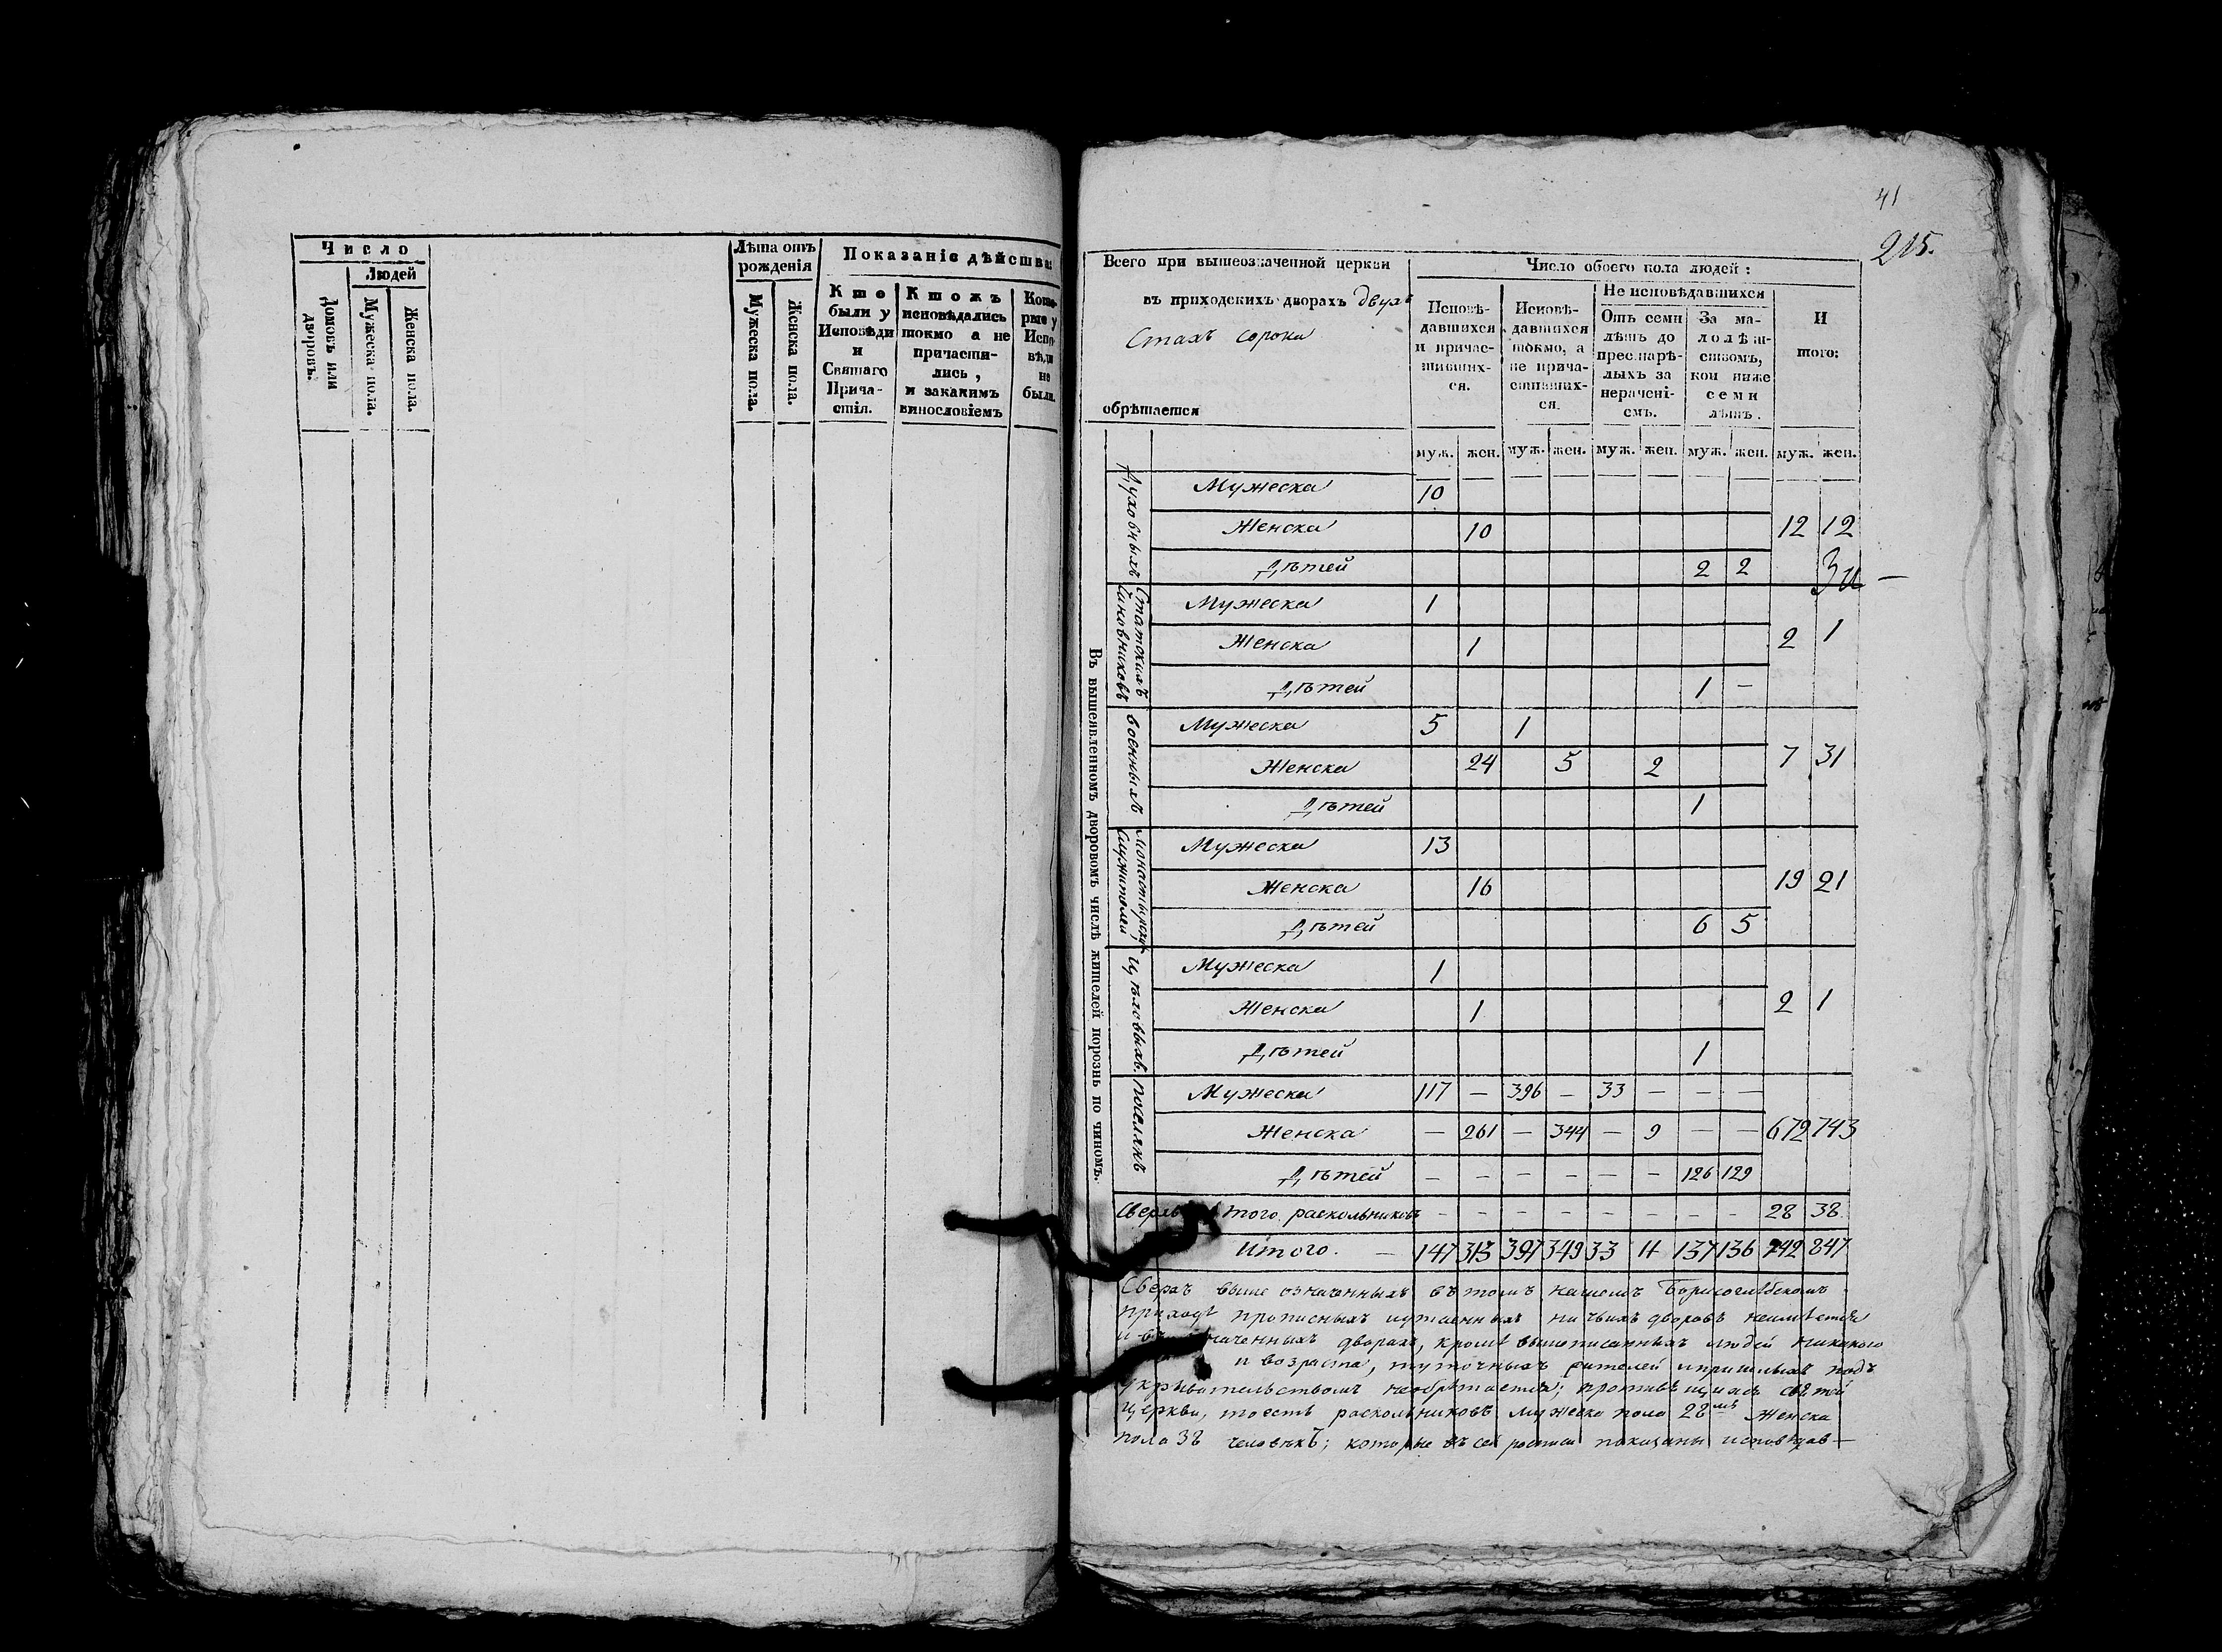 Число
Людей
Домовъ или дворовъ.
Мужеска пола.
Женска пола.
Лѣта отъ
рожденія
Мужеска пола.
Женска пола.
Показаніе дѣйства:
Кто
были у
Исповѣди
и
Святаго
Прича-
стія.
Ктожъ
исповѣдались
токмо а не
причасти-
лись,
и закакимъ
винословіемъ
Кото-
рые у
Испо-
вѣди
не
были.
41
215.
Всего при вышеозначенной церкви
въ приходскихъ дворахъ двухъ
стахъ сорока
обрѣтается
Число обоего пола людей:
Исповѣ-
давшихся
и причас-
тивших-
ся.
Исповѣ-
давшихся
токмо, а
не прича-
стивших-
ся.
Не исповѣдавшихся
Отъ семи
лѣтъ до
престарѣ-
лыхъ за
нерачені-
емъ.
За ма-
лолѣт-
ствомъ,
кои ниже
семи
лѣтъ.
И
того:
муж. жен. муж. жен. муж. жен. муж. жен. муж. жен.
Въ вышеявленномъ дворовомъ числѣ жителей порознь по чиномъ.
Духовныхъ
Мужеска 10
Женска 10 12 12
Дѣтей 2 2
Статскихъ
Чиновниковъ
Мужеска 1
Женска 1 2 1
Дѣтей 1 —
Военныхъ
Мужеска 5 1
Женска 24 5 2 7 31
Дѣтей 1
Монастырски
служителей
Мужеска 13
Женска 16 19 21
Дѣтей 6 5
Мужеска 1
Женска 1 2 1
Дѣтей 1
Поселянъ
Мужеска 117 — 396 — 33 — — —
Женска — 261 — 344 — 9 — — 672 743
Дѣтей — — — — — — 126 129
Сверхъ того раскольниковъ — — — — — — — — 28 38
Итого. — 147 313 397 349 33 11 137 136 742 847
Сверхъ выше означенныхъ въ томъ нашемъ Борисоглѣбскомъ
приходѣ прописныхъ и утаенныхъ ничьихъ дворовъ неимѣется
и въ значенныхъ дворахъ, кромѣ вышеписанныхъ людей никакого
и возраста, туточныхъ жителей и пришлыхъ подъ
укрывательствомъ необрѣтается; противящихся святой
Церкви, тоесть раскольниковъ мужеска пола 28мь Женска
пола 38 человѣкъ; которые въ сей росписи показаны исповѣдав—